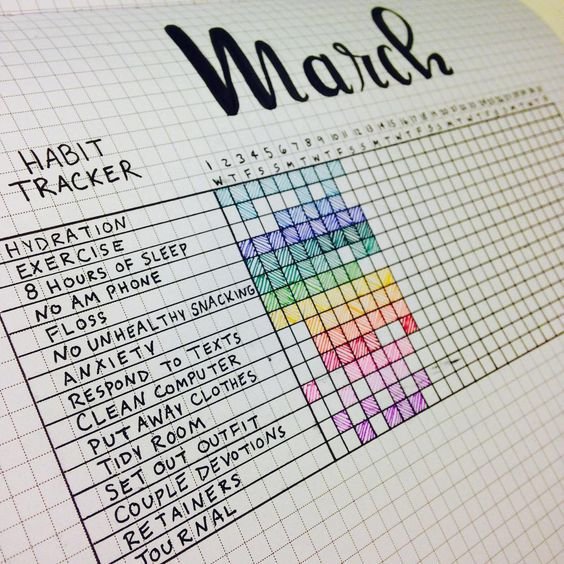 March
HABIT
TRACKER
1 2 3 4 5 6 7 8 9 10 11 12 13
W T F S S M T W T F S S M T W T F S S M T W T
HYDRATION
EXERCISE
8 HOURS OF SLEEP
NO AM PHONE
FLOSS
NO UNHEALTHY SNACKING
ANXIETY
RESPOND TO TEXTS
CLEAN COMPUTER
PUT AWAY CLOTHES
TIDY ROOM
SET OUT OUTFIT
COUPLE DEVOTIONS
RETAINERS
JOURNAL